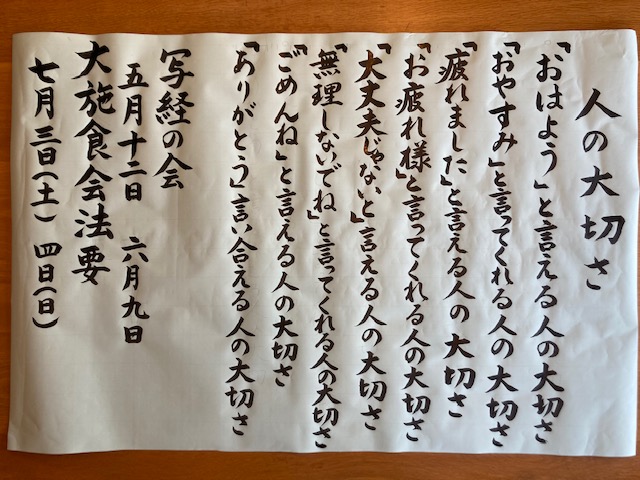 人の大切さ
「おはよう」と言える人の大切さ
「おやすみ」と言ってくれる人の大切さ
「疲れました」と言える人の大切さ
「お疲れ様」と言ってくれる人の大切さ
「大丈夫じゃないと」言える人の大切さ
「無理しないでね」と言ってくれる人の大切さ
「ごめんね」と言える人の大切さ
「ありがとう」言い合える人の大切さ
写経の会
五月十二日 六月九日
大施食会法要
七月三日(土) 四日(日)